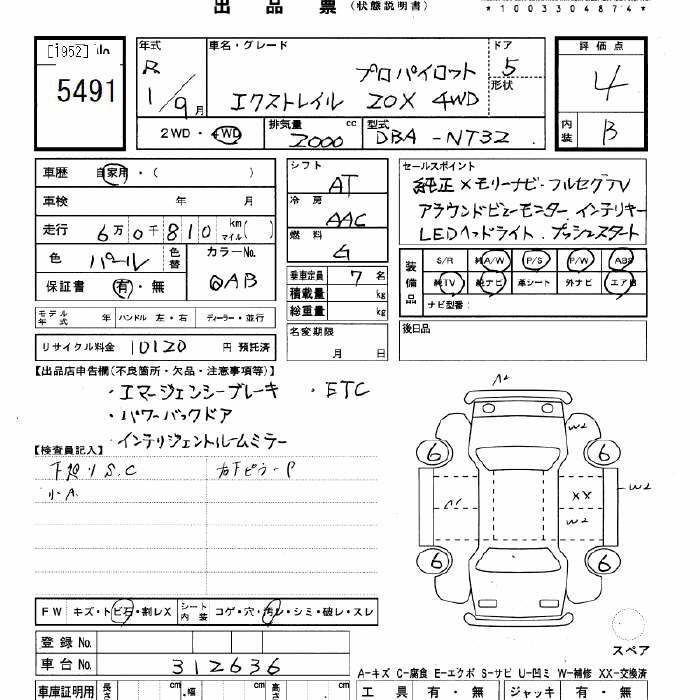 出品票（状態説明書）
*1003304874*
[1952]
5491
年式
R 1/9月
車名・グレード
プロパイロット
エクストレイル 20X 4WD
ドア
5
形状
評価点
4
内装
B
2WD・4WD
排気量 2000 cc
型式 DBA-NT32
車歴 自家用・（ ）
車検 年 月
走行 6万0千810 km マイル( )
色 パール 色替
カラーNo. QAB
保証書 有・無
シフト
AT
冷房
AAC
燃料
G
乗車定員 7 名
積載量 kg
総重量 kg
セールスポイント
純正メモリーナビ・フルセグTV
アラウンドビューモニター インテリキー
LEDヘッドライト プッシュスタート
装備品
S/R 純A/W P/S P/W ABS
純TV 純ナビ 革シート 外ナビ エアB
ナビ型番:
モデル年式 年 ハンドル 左・右 ディーラー・並行
名変期限
月 日
後日品
リサイクル料金 10120 円 預託済
【出品店申告欄(不良箇所・欠品・注意事項等)】
・エマージェンシーブレーキ ・ETC
・パワーバックドア
・インテリジェントルームミラー
【検査員記入】
下廻りS.C
小A
A2
W2
6
6
A1
XX
W2
W2
6
6
FW キズ・トビ石・割レX
シート内装 コゲ・穴・汚レ・シミ・破レ・スレ
登録No.
車台No. 312636
スペア
A-キズ C-腐食 E-エクボ S-サビ U-凹ミ W-補修 XX-交換済
車庫証明用 長さ cm 幅 cm 高さ cm
工具 有・無 ジャッキ 有・無